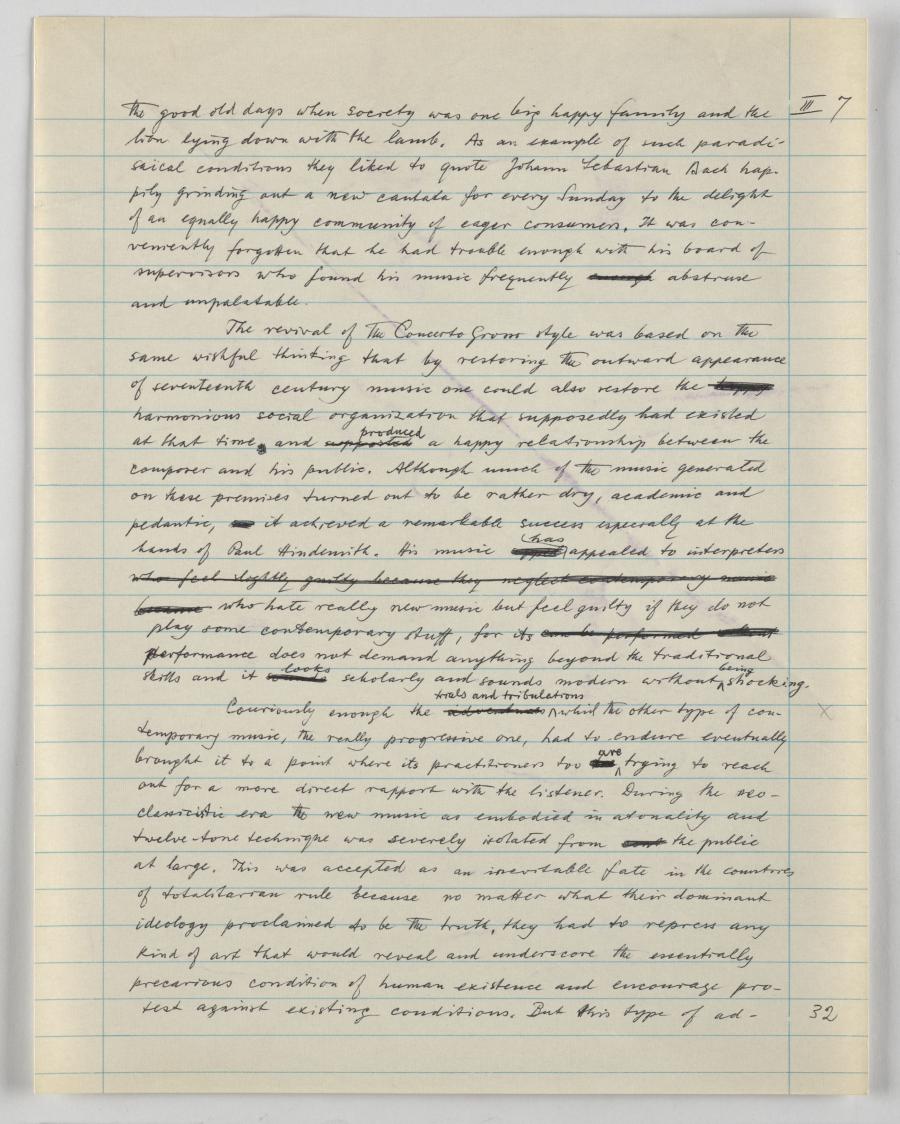 the good old days when society was one big happy family and the III 7
lion lying down with the lamb. As an example of such paradi-
saical conditions they liked to quote Johann Sebastian Bach hap-
pily grinding out a new cantata for every Sunday to the delight
of an equally happy community of eager consumers. It was con-
veniently forgotten that he had trouble enough with his board of
supervisors who found his music frequently enough abstruse
and unpalatable.
The revival of the Concerto Grosso style was based on the
same wishful thinking that by restoring the outward appearance
of seventeenth century music one could also restore the happy
harmonious social organization that supposedly had existed
produced
at that time, and supported a happy relationship between the
composer and his public. Although much of the music generated
on these premises turned out to be rather dry, academic and
pedantic, it achieved a remarkable success especially at the
has
hands of Paul Hindemith. His music appealed to interpreters
who feel slightly guilty because they neglect contemporary music
because who hate really new music but feel guilty if they do not
play some contemporary stuff, for its can be performed without
performance does not demand anything beyond the traditional
looks being
skills and it sounds scholarly and sounds modern without shocking.
trials and tribulations
Couriously enough the adventures which the other type of con-
temporary music, the really progressive one, had to endure eventually
are
brought it to a point where its practitioners too trying to reach
out for a more direct rapport with the listener. During the neo-
classicistic era the new music as embodied in atonality and
twelve-tone technique was severely isolated from the public
at large. This was accepted as an inevitable fate in the countries
of totalitarian rule because no matter what their dominant
ideology proclaimed to be the truth, they had to repress any
kind of art that would reveal and underscore the essentially
precarious condition of human existence and encourage pro-
test against existing conditions. But this type of ad- 32